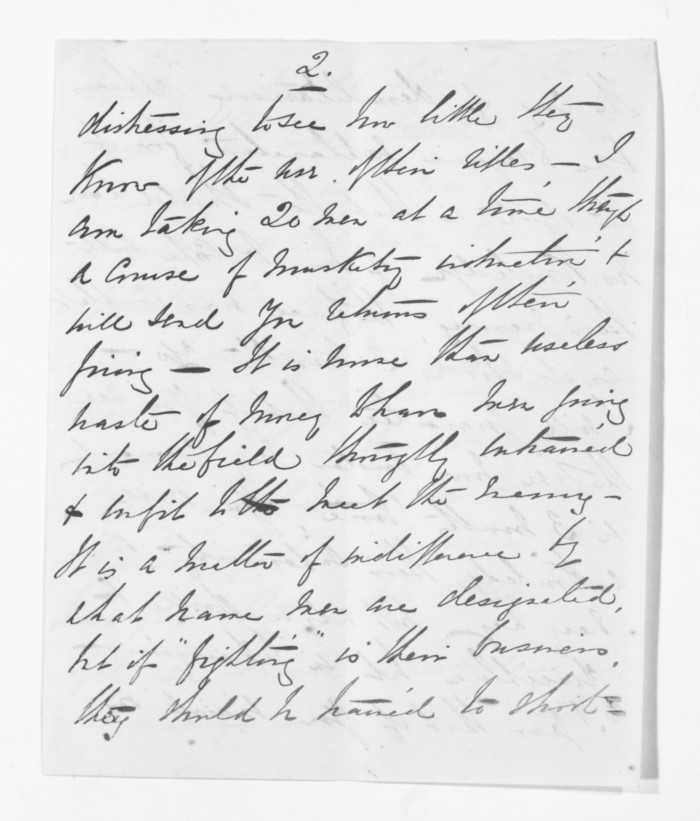 2.
distressing to see how little they
know of the use of their rifles — I
am taking 20 men at a time through
a course of musketry instruction &
will send you returns of their
firing — It is more than useless
waste of money to have men going
into the field thoroughly untrained
& unfit to meet the enemy —
It is a matter of indifference by
what name men are designated,
but if "fighting" is their business,
they should be trained to shoot —